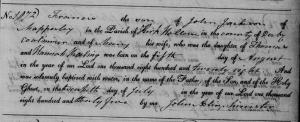 Francis the son of John Jackson of
Mapperley in the Parish of Kirk Hallam in the county of Derby
and of his wife, who was the daughter of Thomas
and Hannah was born on the fifth day of August
in the year of our Lord one thousand eight hundred and twenty eight And
was solemnly baptized with water, in the name of the Father, of the Son, and of the Holy
Ghost, on the day of July in the year of our Lord one thousand
eight hundred and thirty four by me John Minister